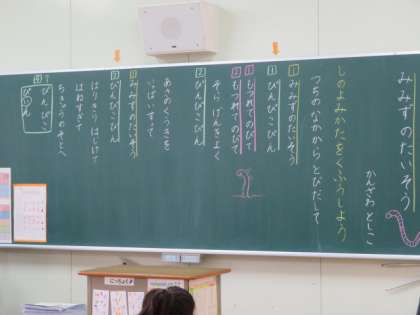 みみずのたいそう
かんざわ としこ
しのよみかたをくふうしよう
つちのなかから とびだして
1 みみずのたいそう
4 ぴんぴこぴん
3 もつれてのびて
2 もつれてのびて
そら げんきよく
2 ぴんぴこぴん
あさのくうきを
いっぱいすって
1 みみずのたいそう
3 ぴんぴこぴん
はりきり はじけて
はねすぎて
ちきゅうのそとへ
ぴんぴこ
ぴいん
にっちょく